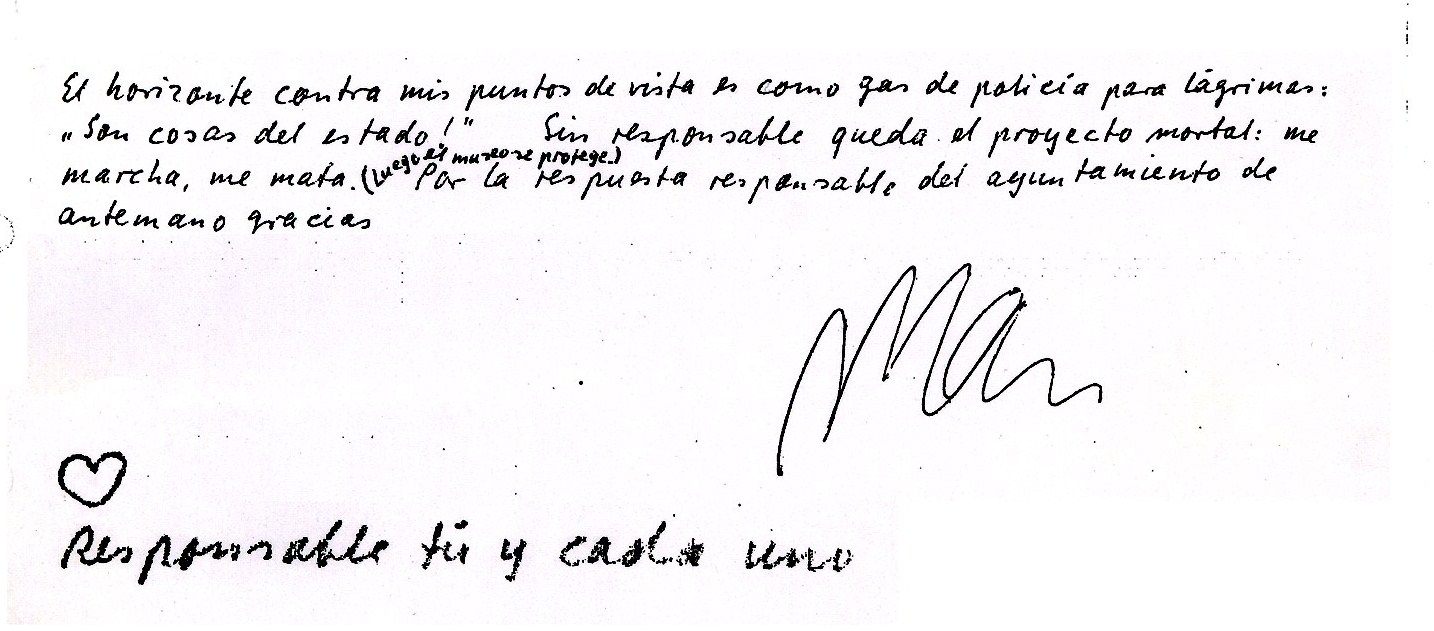 El horizonte contra mis puntos de vista es como gas de policía para lágrimas:
„Son cosas del estado!" Sin responsable queda el proyecto mortal: me
marcha, me mata. (Luego el museo se protege.) Por la respuesta responsable del ayuntamiento de
antemano gracias
Man
Responsable tú y cada uno